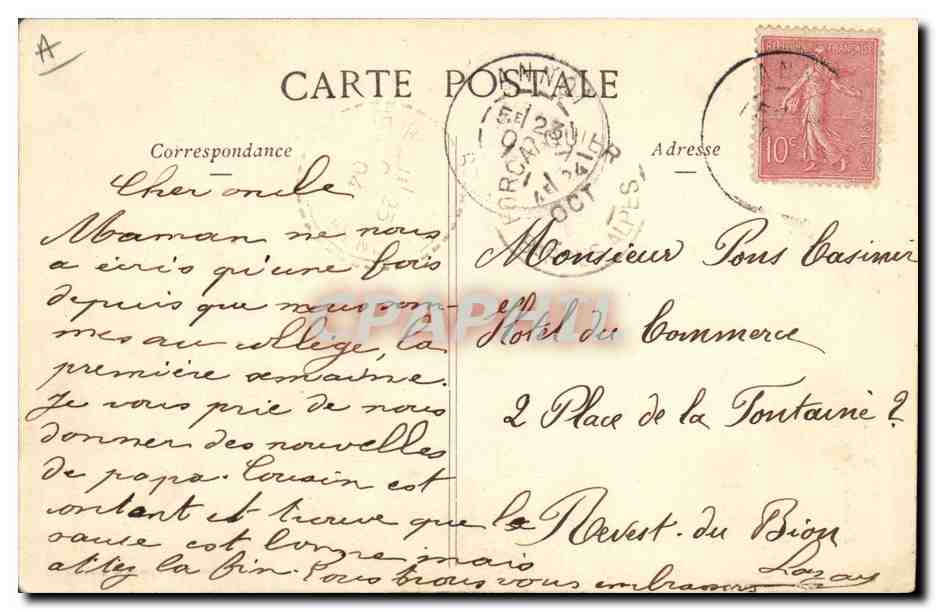 A
CARTE POSTALE
Correspondance
Adresse
REPUBLIQUE FRANÇAISE
10c
23
OCT
ALPES
Cher oncle
Maman ne nous
a écris qu'une fois
depuis que nous som-
mes au collège, la
première semaine.
Je vous prie de nous
donner des nouvelles
de papa. Cousin est
content et trouve que la
sauce est bonne mais
allez la fin. Tous trois vous embrassons
Monsieur Pons Casimir
Hotel du Commerce
2 Place de la Fontaine 2
Revest-du Bion
CPAPHIL